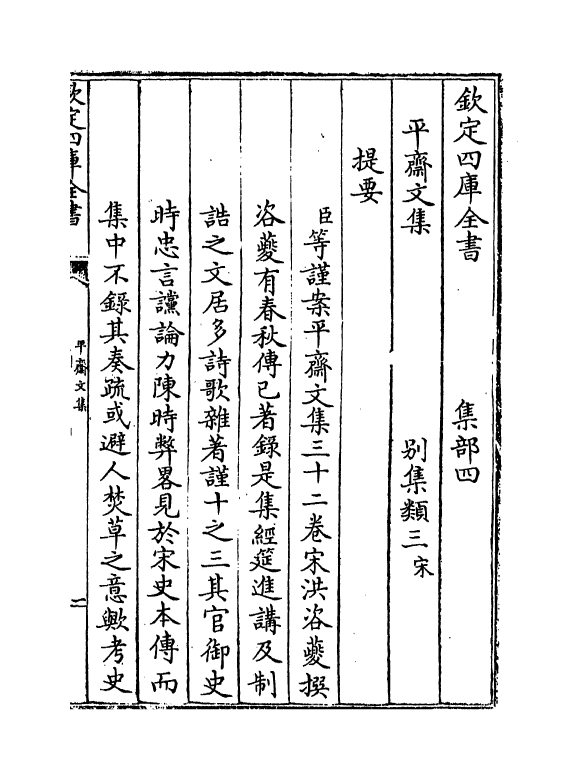 欽定四庫全書　集部四
平齋文集　别集類三宋
提要
臣等謹案平齋文集三十二卷宋洪咨夔撰
咨夔有春秋傳已著錄是集經筵進講及制
誥之文居多詩歌雜著謹十之三其官御史
時忠言讜論力陳時弊畧見於宋史本傳而
集中不錄其奏疏或避人焚草之意歟考史
欽定四庫全書
平齋文集
二